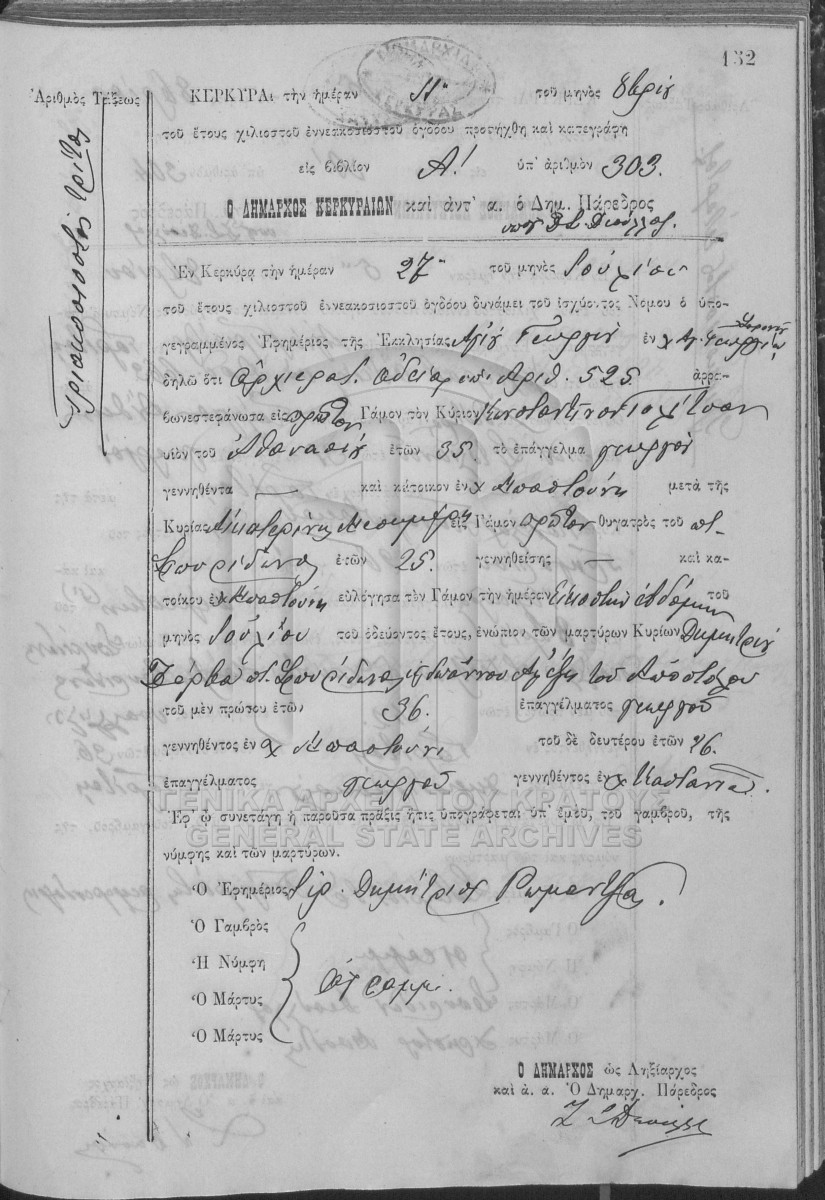 132
Ἀριθμὸς Τάξεως
Τριακοσιοστὸς τρίτος
ΔΗΜΑΡΧΙΑ
ΚΕΡΚΥΡΑΣ
ΚΕΡΚΥΡΑι τὴν ἡμέραν 11η τοῦ μηνὸς 8βρίου
τοῦ ἔτους χιλιοστοῦ ἐννεακοσιοστοῦ ὀγδόου προσήχθη καὶ κατεγράφη
εἰς βιβλίον Α! ὑπ' ἀριθμὸν 303.
Ο ΔΗΜΑΡΧΟΣ ΚΕΡΚΥΡΑΙΩΝ καὶ ἀντ' α. ὁ Δημ. Πάρεδρος
Ἐν Κερκύρᾳ τὴν ἡμέραν 27η τοῦ μηνὸς Ἰουλίου
τοῦ ἔτους χιλιοστοῦ ἐννεακοσιοστοῦ ὀγδόου δυνάμει τοῦ ἰσχύοντος Νομου ὁ ὑπο-
γεγραμμένος Ἐφημέριος τῆς Ἐκκλησίας Ἁγίου Γεωργίου ἐν χ Ἁγ. Γεωργίου
δηλῶ ὅτι ἀρχιερατ. ἀδείᾳ ὑπ' Ἀριθ. 525. ἀρρα-
βωνεστεφάνωσα εἰς πρῶτον Γάμον τὸν Κύριον Κωνσταντῖνον
υἱὸν τοῦ Ἀθανασίου ἐτῶν 35 τὸ ἐπάγγελμα γεωργοῦ
γεννηθέντα — καὶ κάτοικον ἐν χ Μπαστούνι μετὰ τῆς
Κυρίας Αἰκατερίνης εἰς Γάμον πρῶτον θυγατρὸς τοῦ ποτ.
Σπυρίδωνος ἐτῶν 25. γεννηθείσης — καὶ κα-
τοίκου ἐν χ Μπαστούνι εὐλόγησα τὸν Γάμον τὴν ἡμέραν Εἰκοστὴν ἑβδόμην τοῦ
μηνὸς Ἰουλίου τοῦ ὁδεύοντος ἔτους, ἐνώπιον τῶν μαρτύρων Κυρίων Δημητρίου
Ζέρβα ποτ. Σπυρίδωνος Ἰωάννου Ἀλέξη τοῦ Ἀποστόλου
τοῦ μὲν πρώτου ἐτῶν 36. ἐπαγγέλματος γεωργοῦ
γεννηθέντος ἐν χ Μπαστούνι τοῦ δὲ δευτέρου ἐτῶν
ἐπαγγέλματος γεωργοῦ γεννηθέντος ἐν χ
Ἐφ' ᾧ συνετάγη ἡ παροῦσα πρᾶξις ἥτις ὑπογράφεται ὑπ' ἐμοῦ, τοῦ γαμβροῦ, τῆς
νύμφης καὶ τῶν μαρτύρων.
ΓΕΝΙΚΑ ΑΡΧΕΙΑ ΤΟΥ ΚΡΑΤΟΥΣ
GENERAL STATE ARCHIVES
Ὁ Ἐφημέριος Ἱερ. Δημήτριος
Ὁ Γαμβρὸς
Ἡ Νύμφη
Ὁ Μάρτυς
Ὁ Μάρτυς
ἀγράμμ.
Ο ΔΗΜΑΡΧΟΣ ὡς Ληξίαρχος
καὶ ἀ. ἀ. Ὁ Δημαρχ. Πάρεδρος